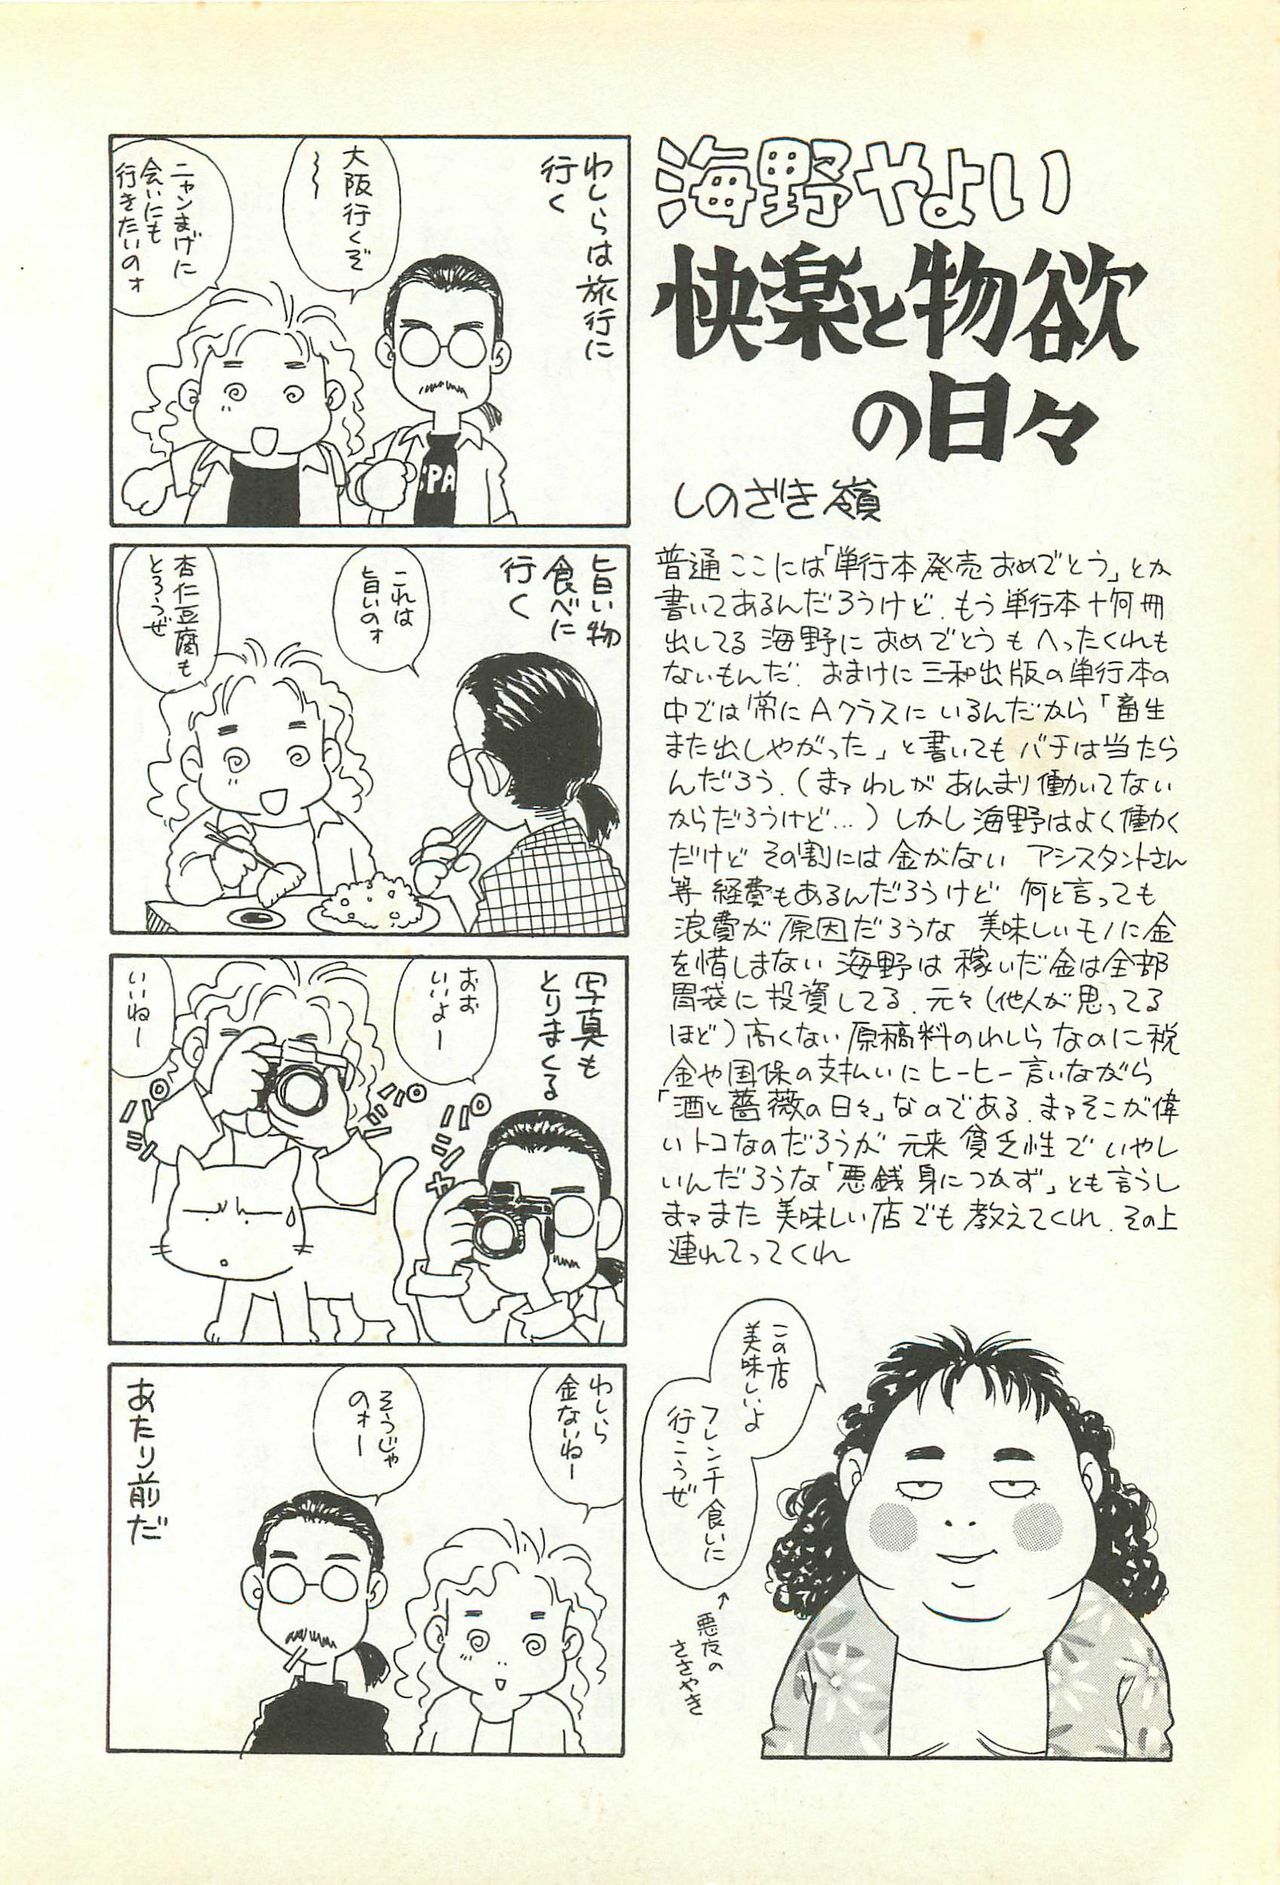 海野やよい
快楽と物欲
の日々
しのざき嶺
普通ここには「単行本発売おめでとう」とか
書いてあるんだろうけど.もう単行本十何冊
出してる海野におめでとうもへったくれも
ないもんだ.おまけに三和出版の単行本の
中では常にAクラスにいるんだから「畜生
また出しやがった」と書いてもバチは当たら
んだろう.(まァわしがあんまり働いてない
からだろうけど...)しかし海野はよく働く
だけどその割には金がない アシスタントさん
等経費もあるんだろうけど 何と言っても
浪費が原因だろうな 美味しいモノに金
を惜しまない海野は稼いだ金は全部
胃袋に投資してる.元々(他人が思ってる
ほど)高くない原稿料のわしらなのに税
金や国保の支払いにヒーヒー言いながら
「酒と薔薇の日々」なのである.まァそこが偉
いトコなのだろうが 元来貧乏性でいやし
いんだろうな「悪銭身につかず」とも言うし
まァまた美味しい店でも教えてくれ.その上
連れてってくれ
わしらは旅行に
行く
大阪行くぞ
〜
ニャンまげに
会いにも
行きたいのォ
SPA
旨い物
食べに
行く
これは
旨いのォ
杏仁豆腐も
とろうぜ
写真も
とりまくる
おお
いいよー
いいね〜
パシャ
パシ
パシ
わしら
金ないねー
そうじゃ
のォー
あたり前だ
この店
美味しいよ
フレンチ食いに
行こうぜ
悪友の
ささやき